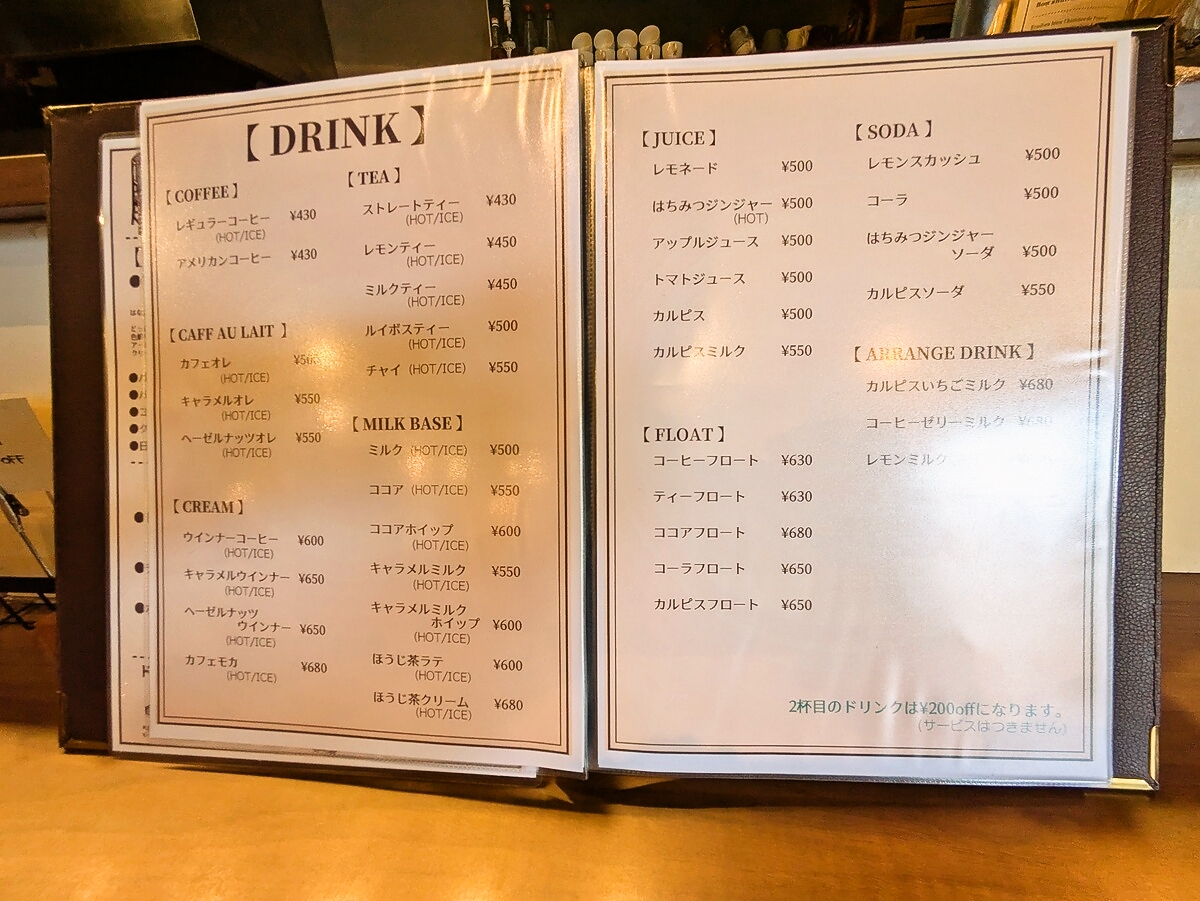 【 DRINK 】
【 COFFEE 】
レギュラーコーヒー ¥430
(HOT/ICE)
アメリカンコーヒー ¥430
【 CAFF AU LAIT 】
カフェオレ
(HOT/ICE)
キャラメルオレ ¥550
(HOT/ICE)
ヘーゼルナッツオレ ¥550
(HOT/ICE)
【 CREAM 】
ウインナーコーヒー ¥600
(HOT/ICE)
キャラメルウインナー ¥650
(HOT/ICE)
ヘーゼルナッツ
ウインナー ¥650
(HOT/ICE)
カフェモカ ¥680
(HOT/ICE)
【 TEA 】
ストレートティー ¥430
(HOT/ICE)
レモンティー ¥450
(HOT/ICE)
ミルクティー ¥450
(HOT/ICE)
ルイボスティー ¥500
(HOT/ICE)
チャイ (HOT/ICE) ¥550
【 MILK BASE 】
ミルク (HOT/ICE) ¥500
ココア (HOT/ICE) ¥550
ココアホイップ ¥600
(HOT/ICE)
キャラメルミルク ¥550
(HOT/ICE)
キャラメルミルク
ホイップ ¥600
(HOT/ICE)
ほうじ茶ラテ ¥600
(HOT/ICE)
ほうじ茶クリーム ¥680
(HOT/ICE)
【 JUICE 】
レモネード ¥500
はちみつジンジャー ¥500
(HOT)
アップルジュース ¥500
トマトジュース ¥500
カルピス ¥500
カルピスミルク ¥550
【 FLOAT 】
コーヒーフロート ¥630
ティーフロート ¥630
ココアフロート ¥680
コーラフロート ¥650
カルピスフロート ¥650
【 SODA 】
レモンスカッシュ ¥500
コーラ ¥500
はちみつジンジャー
ソーダ ¥500
カルピスソーダ ¥550
【 ARRANGE DRINK 】
カルピスいちごミルク ¥680
コーヒーゼリーミルク ¥680
レモンミルク
2杯目のドリンクは¥200offになります。
(サービスはつきません)